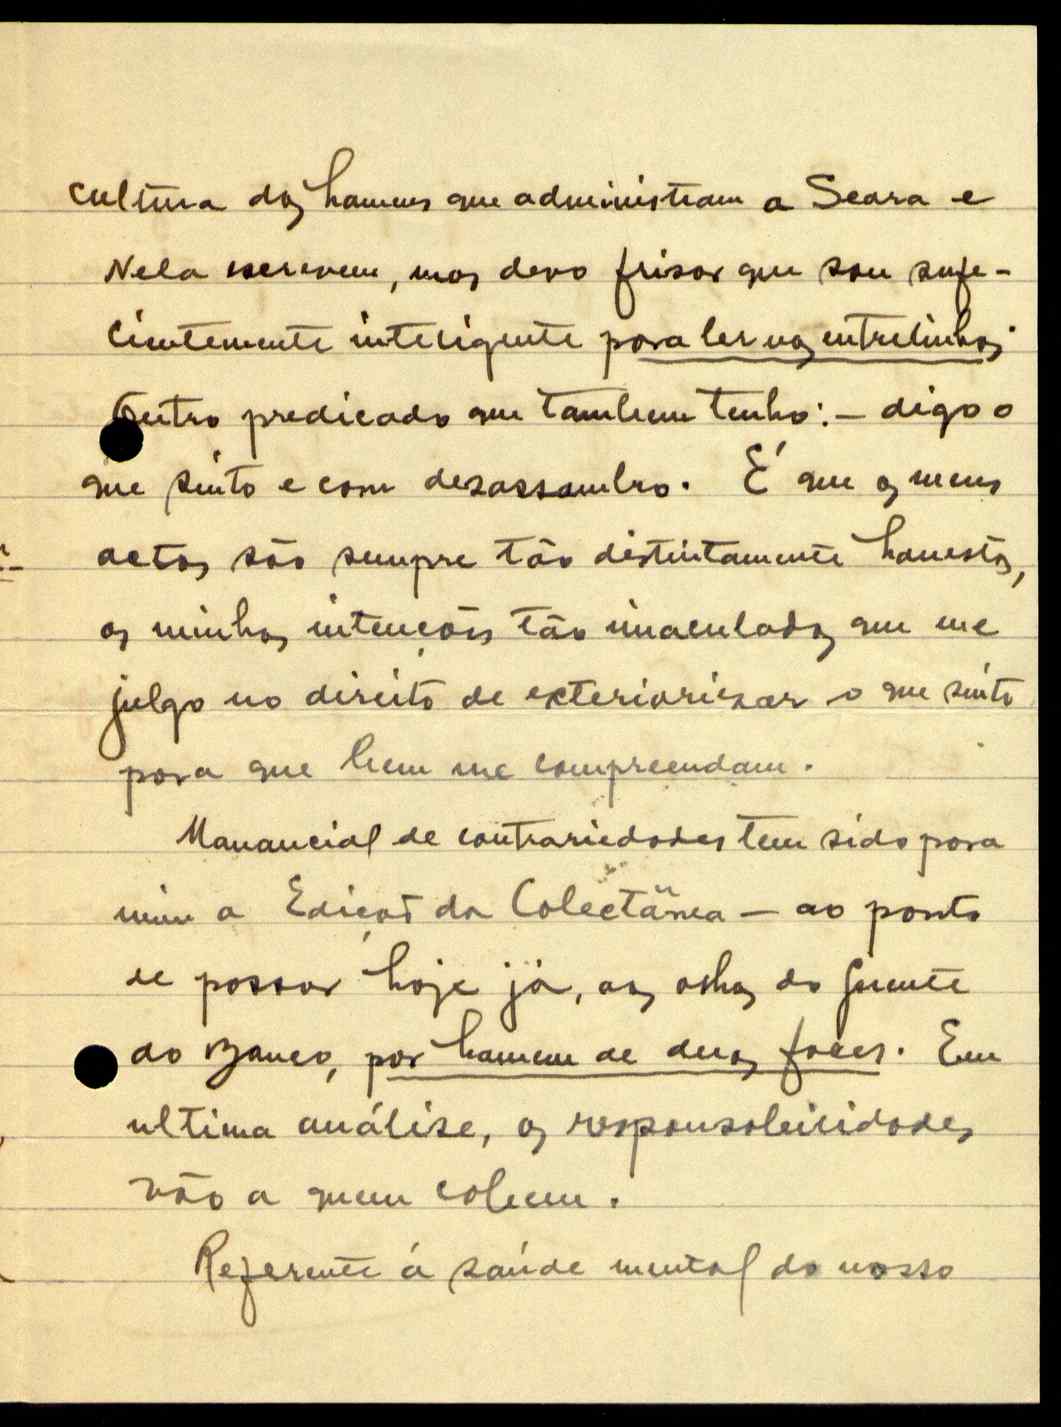 cultura dos homens que administram a Seara e
Nela escrevem, mas devo frisar que sou sufe-
cientemente inteligente para ler nas entrelinhas.
Outro predicado que tambem tenho: — digo o
que sinto e com desassombro. É que os meus
actos são sempre tão distintamente honestos,
as minhas intenções tão imaculadas que me
julgo no direito de exteriorizar o que sinto
para que bem me compreendam.
Manancial de contrariedades tem sido para
mim a Edição da Colectânea — ao ponto
de passar hoje já, aos olhos do Gerente
do Banco, por homem de duas faces. Em
ultima análise, as responsabilidades
vão a quem cabem.
Referente á saúde mental do nosso